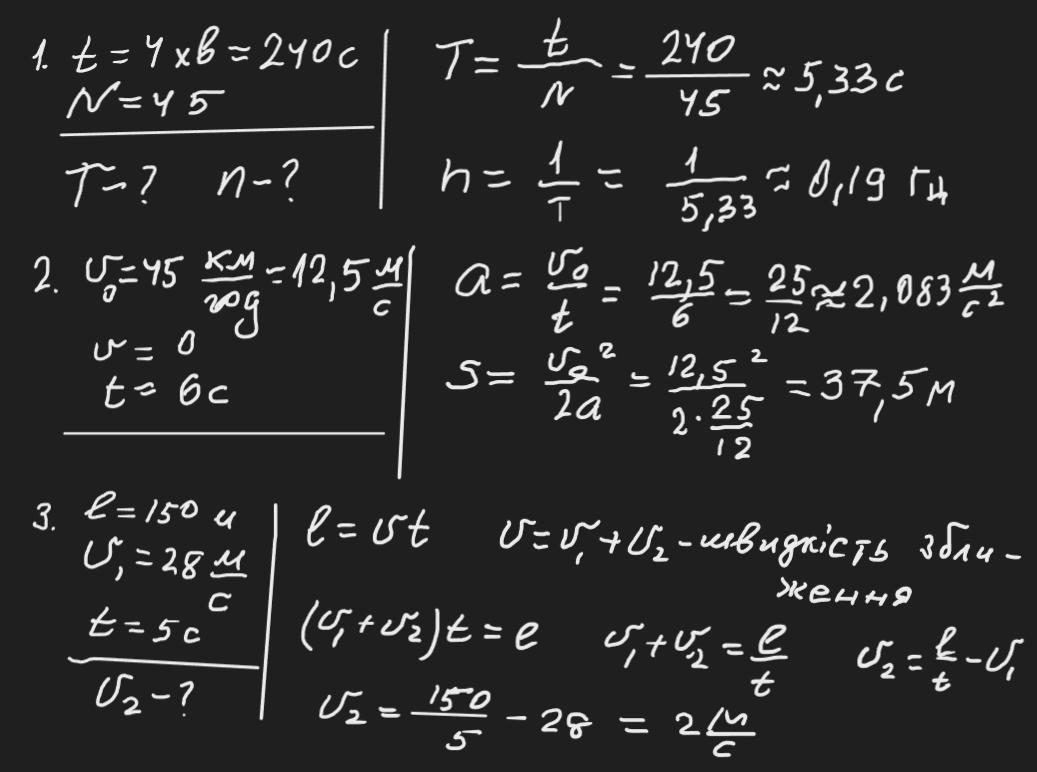 1. t = 4 хв = 240 с
N = 45
T - ? n - ?
T = t/N = 240/45 ≈ 5,33 с
n = 1/T = 1/5,33 ≈ 0,19 Гц
2. υ₀ = 45 км/год = 12,5 м/с
υ = 0
t = 6 с
a = υ₀/t = 12,5/6 = 25/12 ≈ 2,083 м/с²
S = υ₀²/2a = 12,5²/(2·25/12) = 37,5 м
3. l = 150 м
υ₁ = 28 м/с
t = 5 с
υ₂ - ?
l = υt υ = υ₁ + υ₂ - швидкість збли-
ження
(υ₁ + υ₂)t = l υ₁ + υ₂ = l/t υ₂ = l/t - υ₁
υ₂ = 150/5 - 28 = 2 м/с